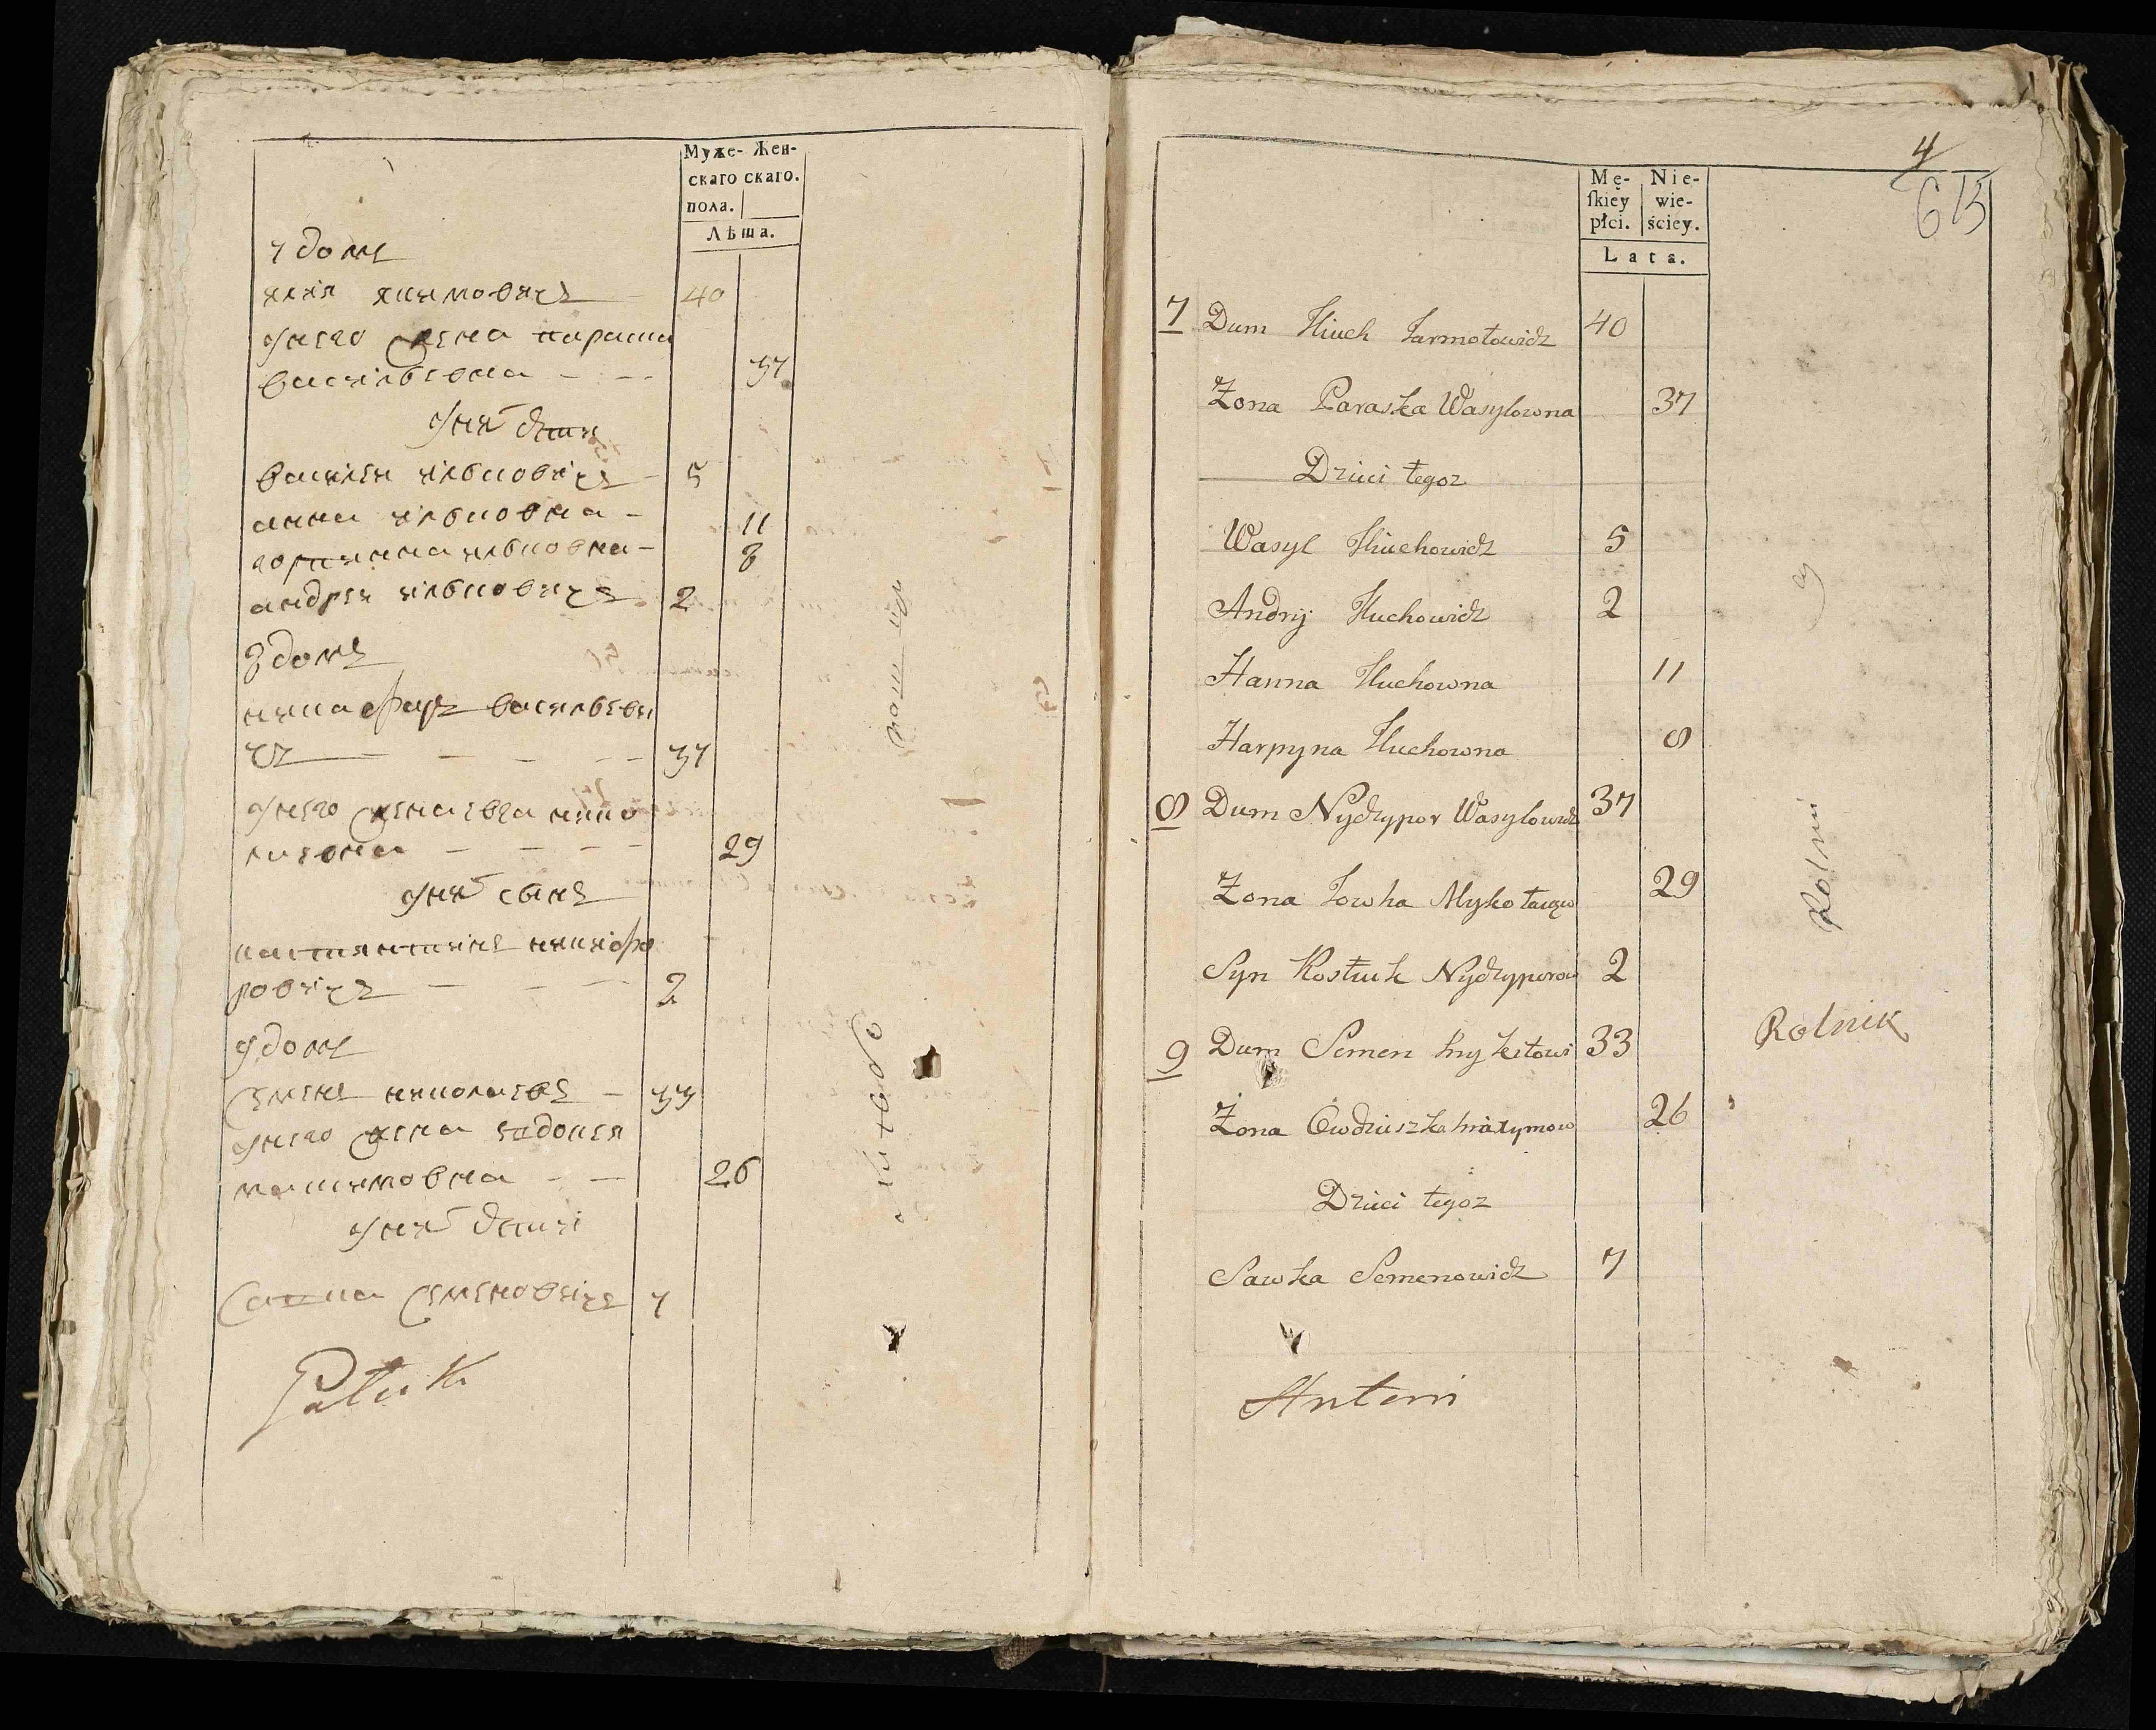 Муже- Жен-
скаго скаго.
пола.
Лѣта.
7 домъ
илія якимовичъ 40
унего жена параска
васильевна - - - 37
унихъ дети
василеи ильковичъ - 5
анна ильковна - 11
горпинна ильковна - 8
андреи ильковичъ 2
8 домъ
никифоръ васильеви
чъ - - - - 37
унего жена евга нико
лаевна - - - - 29
унихъ сынъ
костянтинъ никифо
ровичъ - - - 2
9 домъ
семенъ николаевъ - 33
унего жена евдокея
максимовна - - 26
унихъ дети
савка семеновичъ 7
4
615
Mę- Nie-
ſkiey wie-
płci. ściey.
Lata.
7 Dum Iliuch Jarmołowicz 40
Żona Paraska Wasylowna 37
Dzieci tegoz
Wasyl Iliuchowicz 5
Andrij Iluchowicz 2
Hanna Iluchowna 11
Harpyna Iluchowna 8
8 Dum Nyczypor Wasylowicz 37
Żona Jowha Mykołaiow 29
Syn Kostiuk Nyczyporow 2
Rolnik
9 Dum Semen Mykitowi 33
Rolnik
Żona Owdiuszka Maxymow 26
Dzieci tegoz
Sawka Semenowicz 7
Antoni